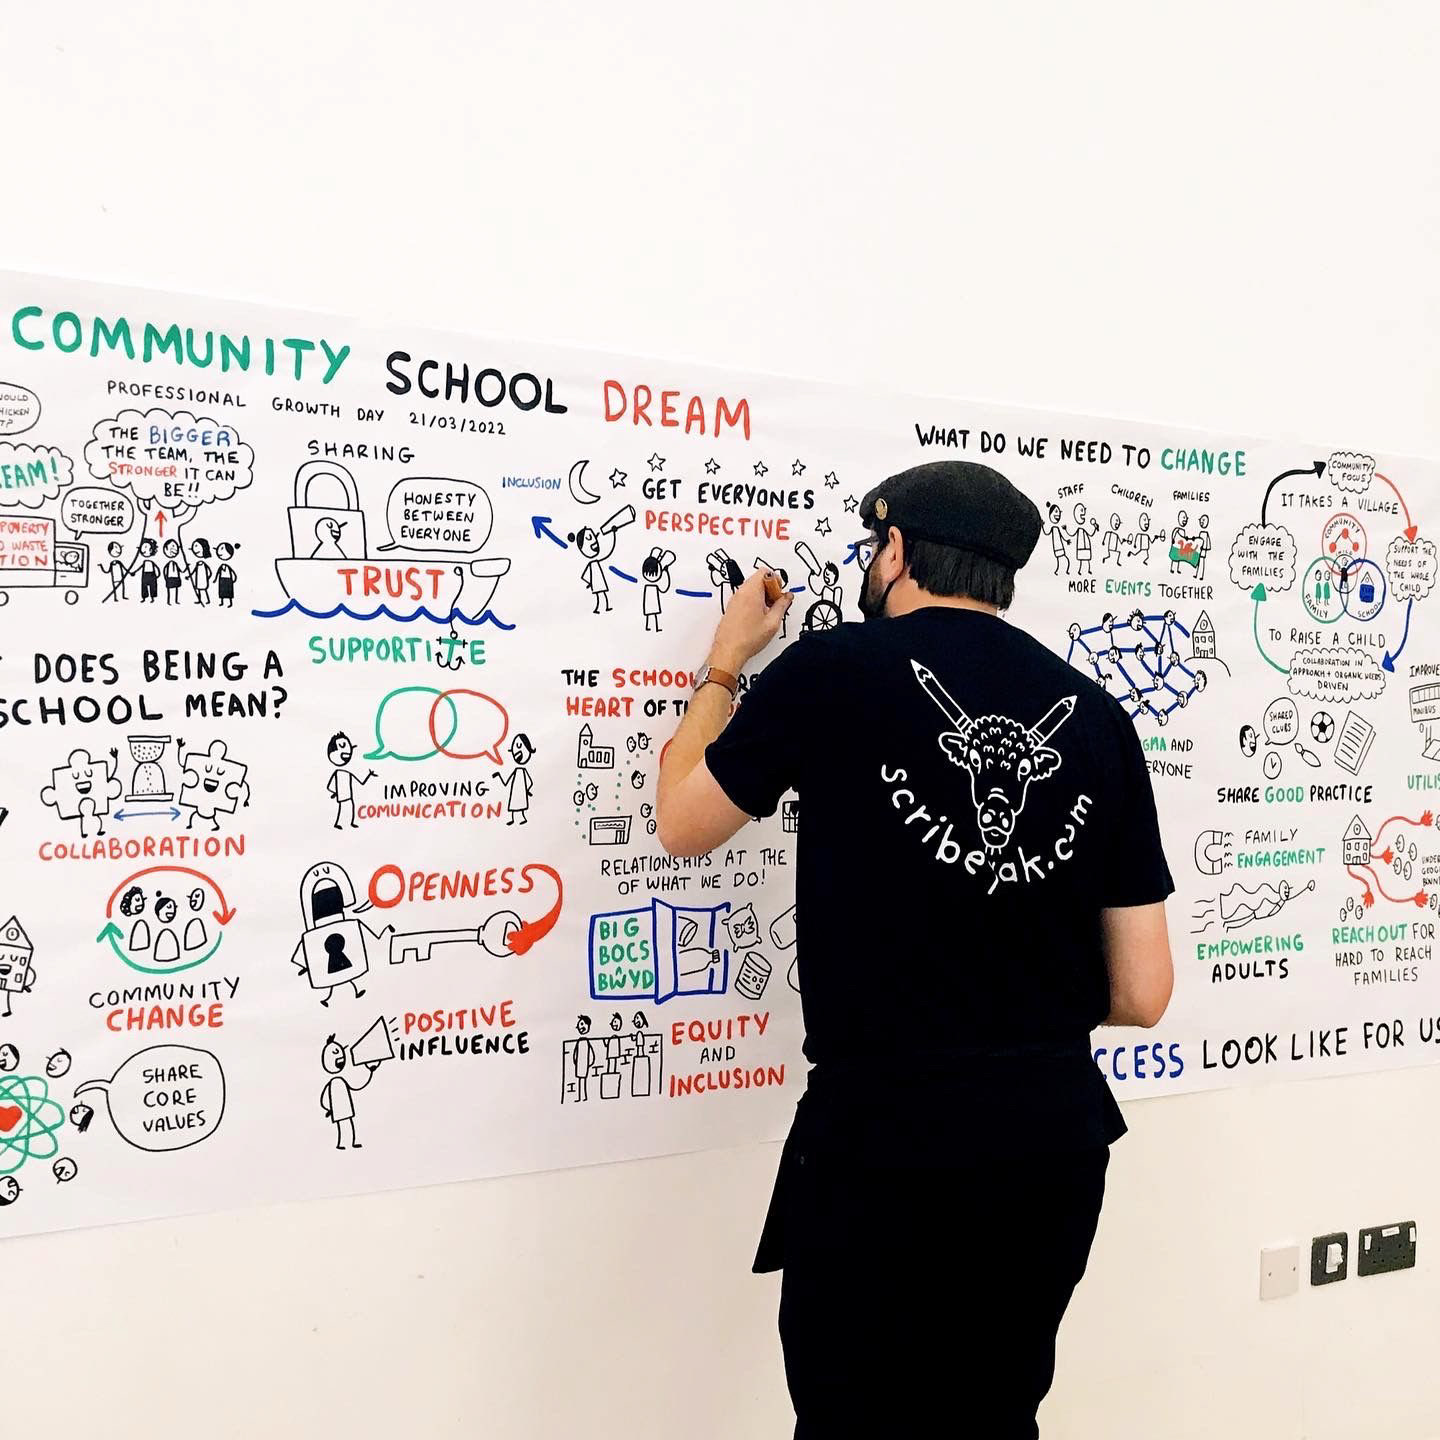 COMMUNITY SCHOOL DREAM
PROFESSIONAL GROWTH DAY 21/03/2022
TOGETHER
STRONGER
THE BIGGER
THE TEAM, THE
STRONGER IT CAN
BE!!
SHARING
HONESTY
BETWEEN
EVERYONE
TRUST
SUPPORTIVE
INCLUSION
GET EVERYONES
PERSPECTIVE
DOES BEING A
SCHOOL MEAN?
COLLABORATION
COMMUNITY
CHANGE
SHARE
CORE
VALUES
IMPROVING
COMUNICATION
OPENNESS
POSITIVE
INFLUENCE
THE SCHOOL
HEART OF
RELATIONSHIPS AT THE
OF WHAT WE DO!
BIG
BOCS
BŴYD
EQUITY
AND
INCLUSION
scribeyak.com
WHAT DO WE NEED TO CHANGE
STAFF
CHILDREN
FAMILIES
MORE EVENTS TOGETHER
AND
COMMUNITY
FOCUS
IT TAKES A VILLAGE
ENGAGE
WITH THE
FAMILIES
COMMUNITY
FAMILY
SCHOOL
SUPPORT THE
NEEDS OF
THE WHOLE
CHILD
TO RAISE A CHILD
COLLABORATION IN
APPROACH + ORGANIC NEEDS
DRIVEN
SHARED
CLUBS
SHARE GOOD PRACTICE
MINIBUS
FAMILY
ENGAGEMENT
EMPOWERING
ADULTS
REACH OUT FOR
HARD TO REACH
FAMILIES
LOOK LIKE FOR US